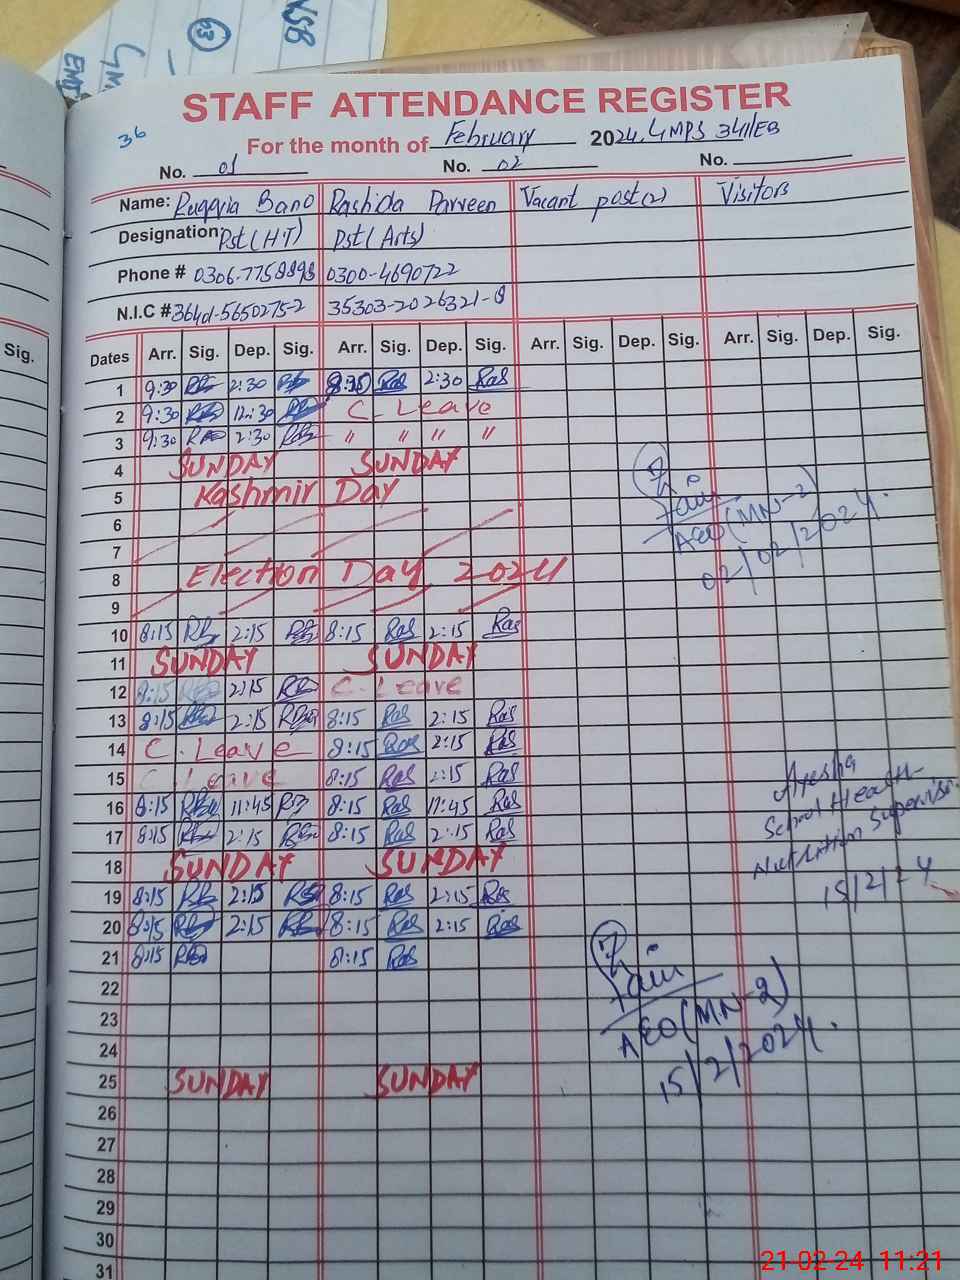 NSB
03
36
STAFF ATTENDANCE REGISTER
For the month of February 2024. GMPS 341/EB
No. 01 No. 02 No.
Name: Ruqqyia Bano Rashida Parveen Vacant post(2) Visitors
Designation: Pst(HT) Pst(Arts)
Phone # 0300-4690722
N.I.C # 35303-2026321-8
Sig. Dates Arr. Sig. Dep. Sig. Arr. Sig. Dep. Sig. Arr. Sig. Dep. Sig. Arr. Sig. Dep. Sig.
1 9:30 2:30 Ras 2:30 Ras
2 9:30 12:30 C. Leave
3 9:30 2:30 " " " "
4 SUNDAY SUNDAY
5 Kashmir Day
6
7
8 Election Day 2024
9
10 8:15 RB 2:15 RB 8:15 Ras 2:15 Ras
11 SUNDAY SUNDAY
12 8:15 2:15 RB C. Leave
13 8:15 2:15 8:15 Ras 2:15 Ras
14 C. Leave 8:15 Ras 2:15 Ras
15 C. Leave 8:15 Ras 2:15 Ras
16 8:15 11:45 RB 8:15 Ras 11:45 Ras
17 8:15 2:15 8:15 Ras 2:15 Ras
18 SUNDAY SUNDAY
19 8:15 RB 2:15 RB 8:15 Ras 2:15 Ras
20 8:15 2:15 8:15 Ras 2:15 Ras
21 8:15 8:15 Ras
22
23
24
25 SUNDAY SUNDAY
26
27
28
29
30
31
AEO(MN-2)
02/02/2024.
Ayesha
School Health
Nutrition Supervisor
15/2/24
AEO(MN-2)
15/2/2024.
21-02-24 11:21